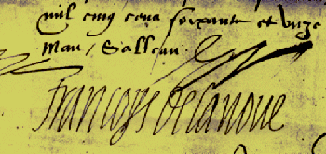 mil cinq cens soixante et unze
Francoys de Lanoue